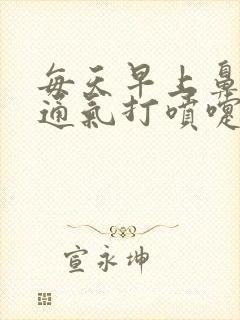 每天早上鼻
通氣打噴嚏
宣永坤